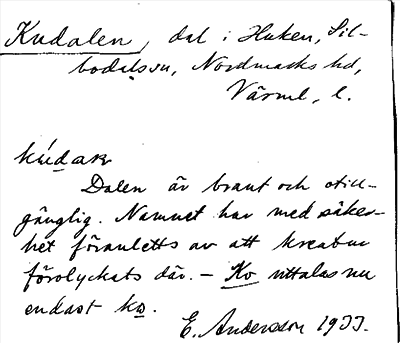 Kudalen, dal i Huken, Sil-
bodalssn, Nordmarks hd,
Värml. l.
kúdaɷ
Dalen är brant och otill-
gänglig. Namnet har med säker-
het föranletts av att kreatur
förolyckats där. – Ko uttalas nu
endast kɷ.
E. Andersson 1933.